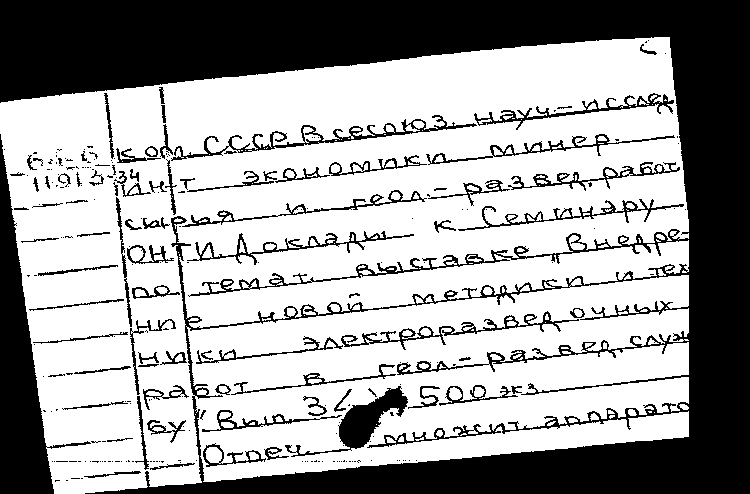 ком. СССР. Всесоюз. науч.-исслед.
11913-34 ин-т экономики минер.
сырья и геол.-развед. работ
ОНТИ. Доклады к Семинару
по темат. выставке „Внедре-
ние новой методики и тех
ники электроразведочных
работ в геол.-развед. служ
бу" Вып. 34 500 экз.
Отпеч. множит. аппарато